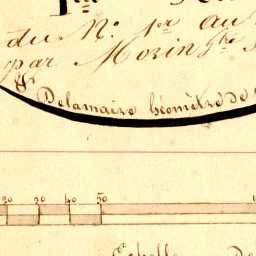 du N.º 1er au
par Morin
Delamaire Géomètre de
20 30 40 50
Echelle De